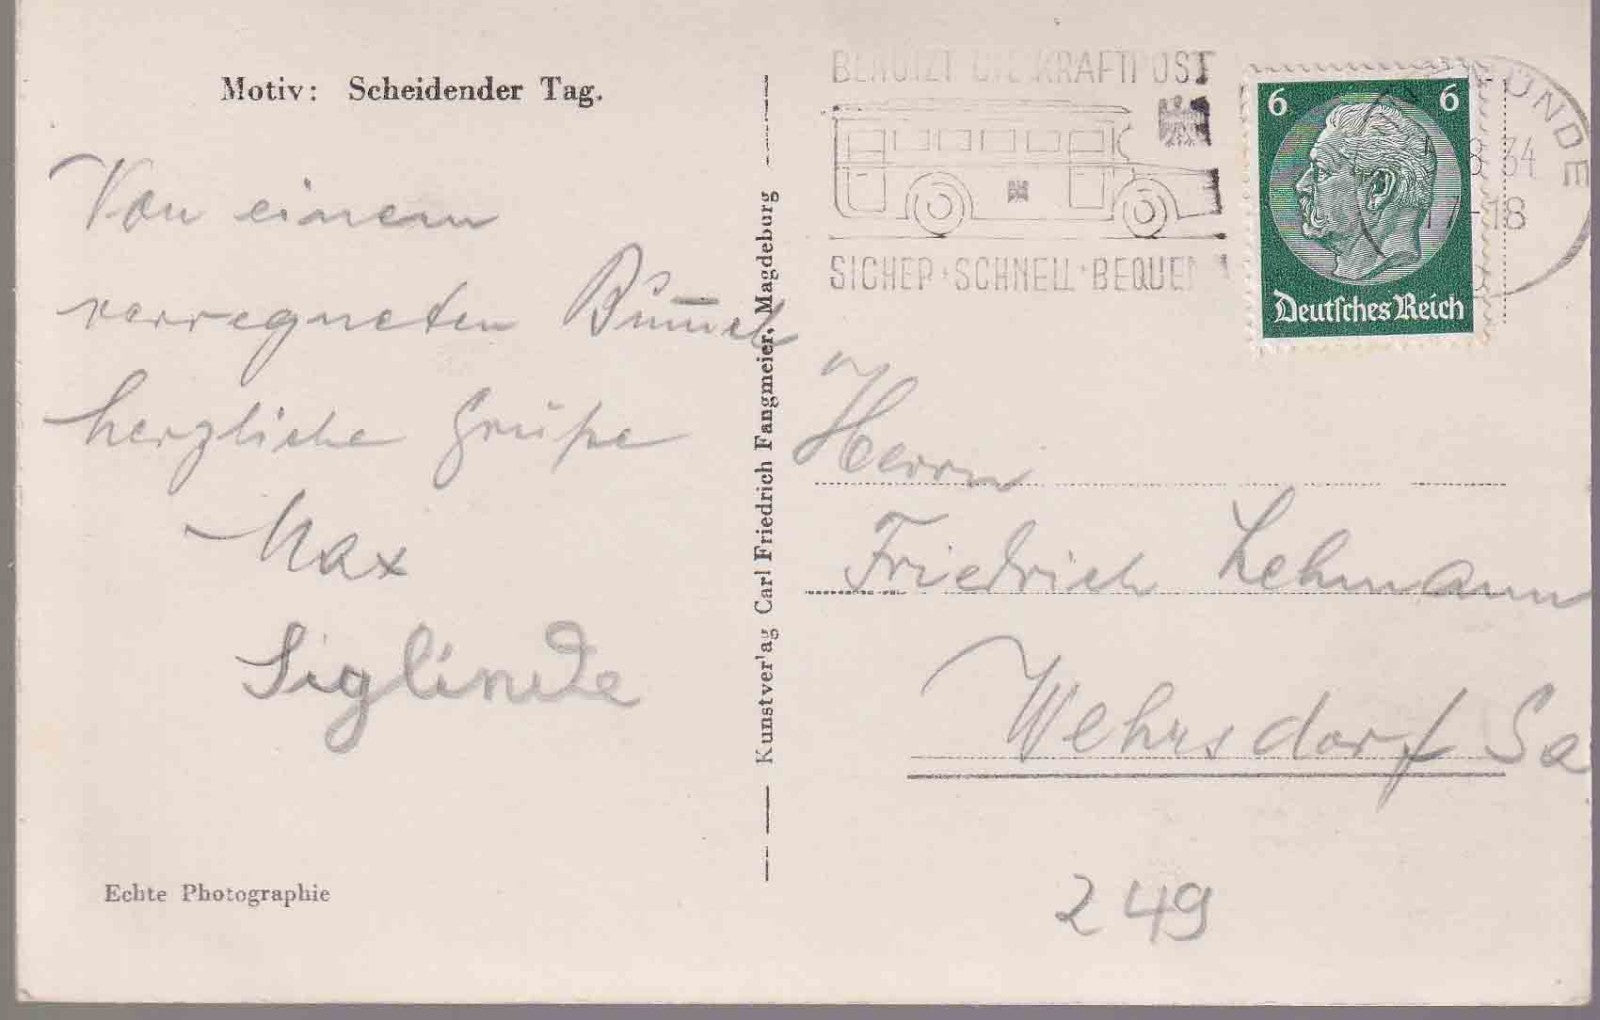 Motiv: Scheidender Tag.
Von einem
verregneten Bummel
herzliche Grüße
Max
Siglinde
Echte Photographie
Kunstverlag Carl Friedrich Fangmeier, Magdeburg
BENUTZT DIE KRAFTPOST
SICHER·SCHNELL·BEQUEM
6 6
Deutsches Reich
8 34
17-18
Herrn
Friedrich Lehmann
Wehrsdorf Sa
249